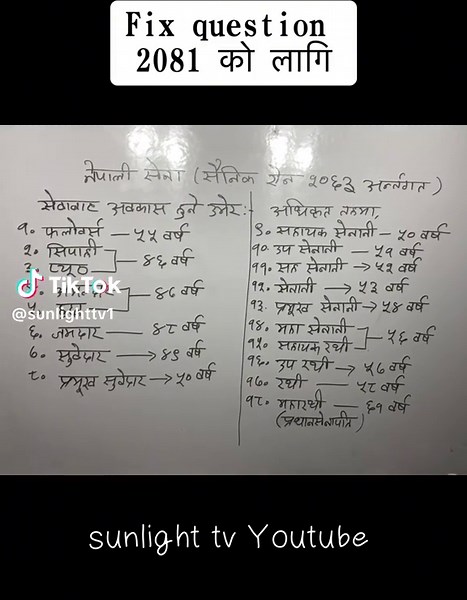 Fix question
2081 को लागि
नेपाली सेना (सैनिक ऐन २०६३ अर्न्तगत)
सेवाबाट अवकास हुने उमेर:-
१. फलोवर्स — ५५ वर्ष
२. सिपाही
३. प्युठ
४६ वर्ष
४६ वर्ष
६. जमदार — ४८ वर्ष
७. सुवेदार → ४९ वर्ष
८. प्रमूख सुवेदार → ५० वर्ष
अधिकृत तहमा,
९. सहायक सेनानी — ५० वर्ष
१०. उप सेनानी — ५१ वर्ष
११. सह सेनानी → ५२ वर्ष
१२. सेनानी → ५३ वर्ष
१३. प्रमूख सेनानी → ५४ वर्ष
१४. महा सेनानी
१५. सहायक रथी
५६ वर्ष
१६. उप रथी → ५७ वर्ष
१७. रथी — ५८ वर्ष
१८. महारथी — ६१ वर्ष
(प्रधानसेनापति)
TikTok
@sunlighttv1
sunlight tv Youtube